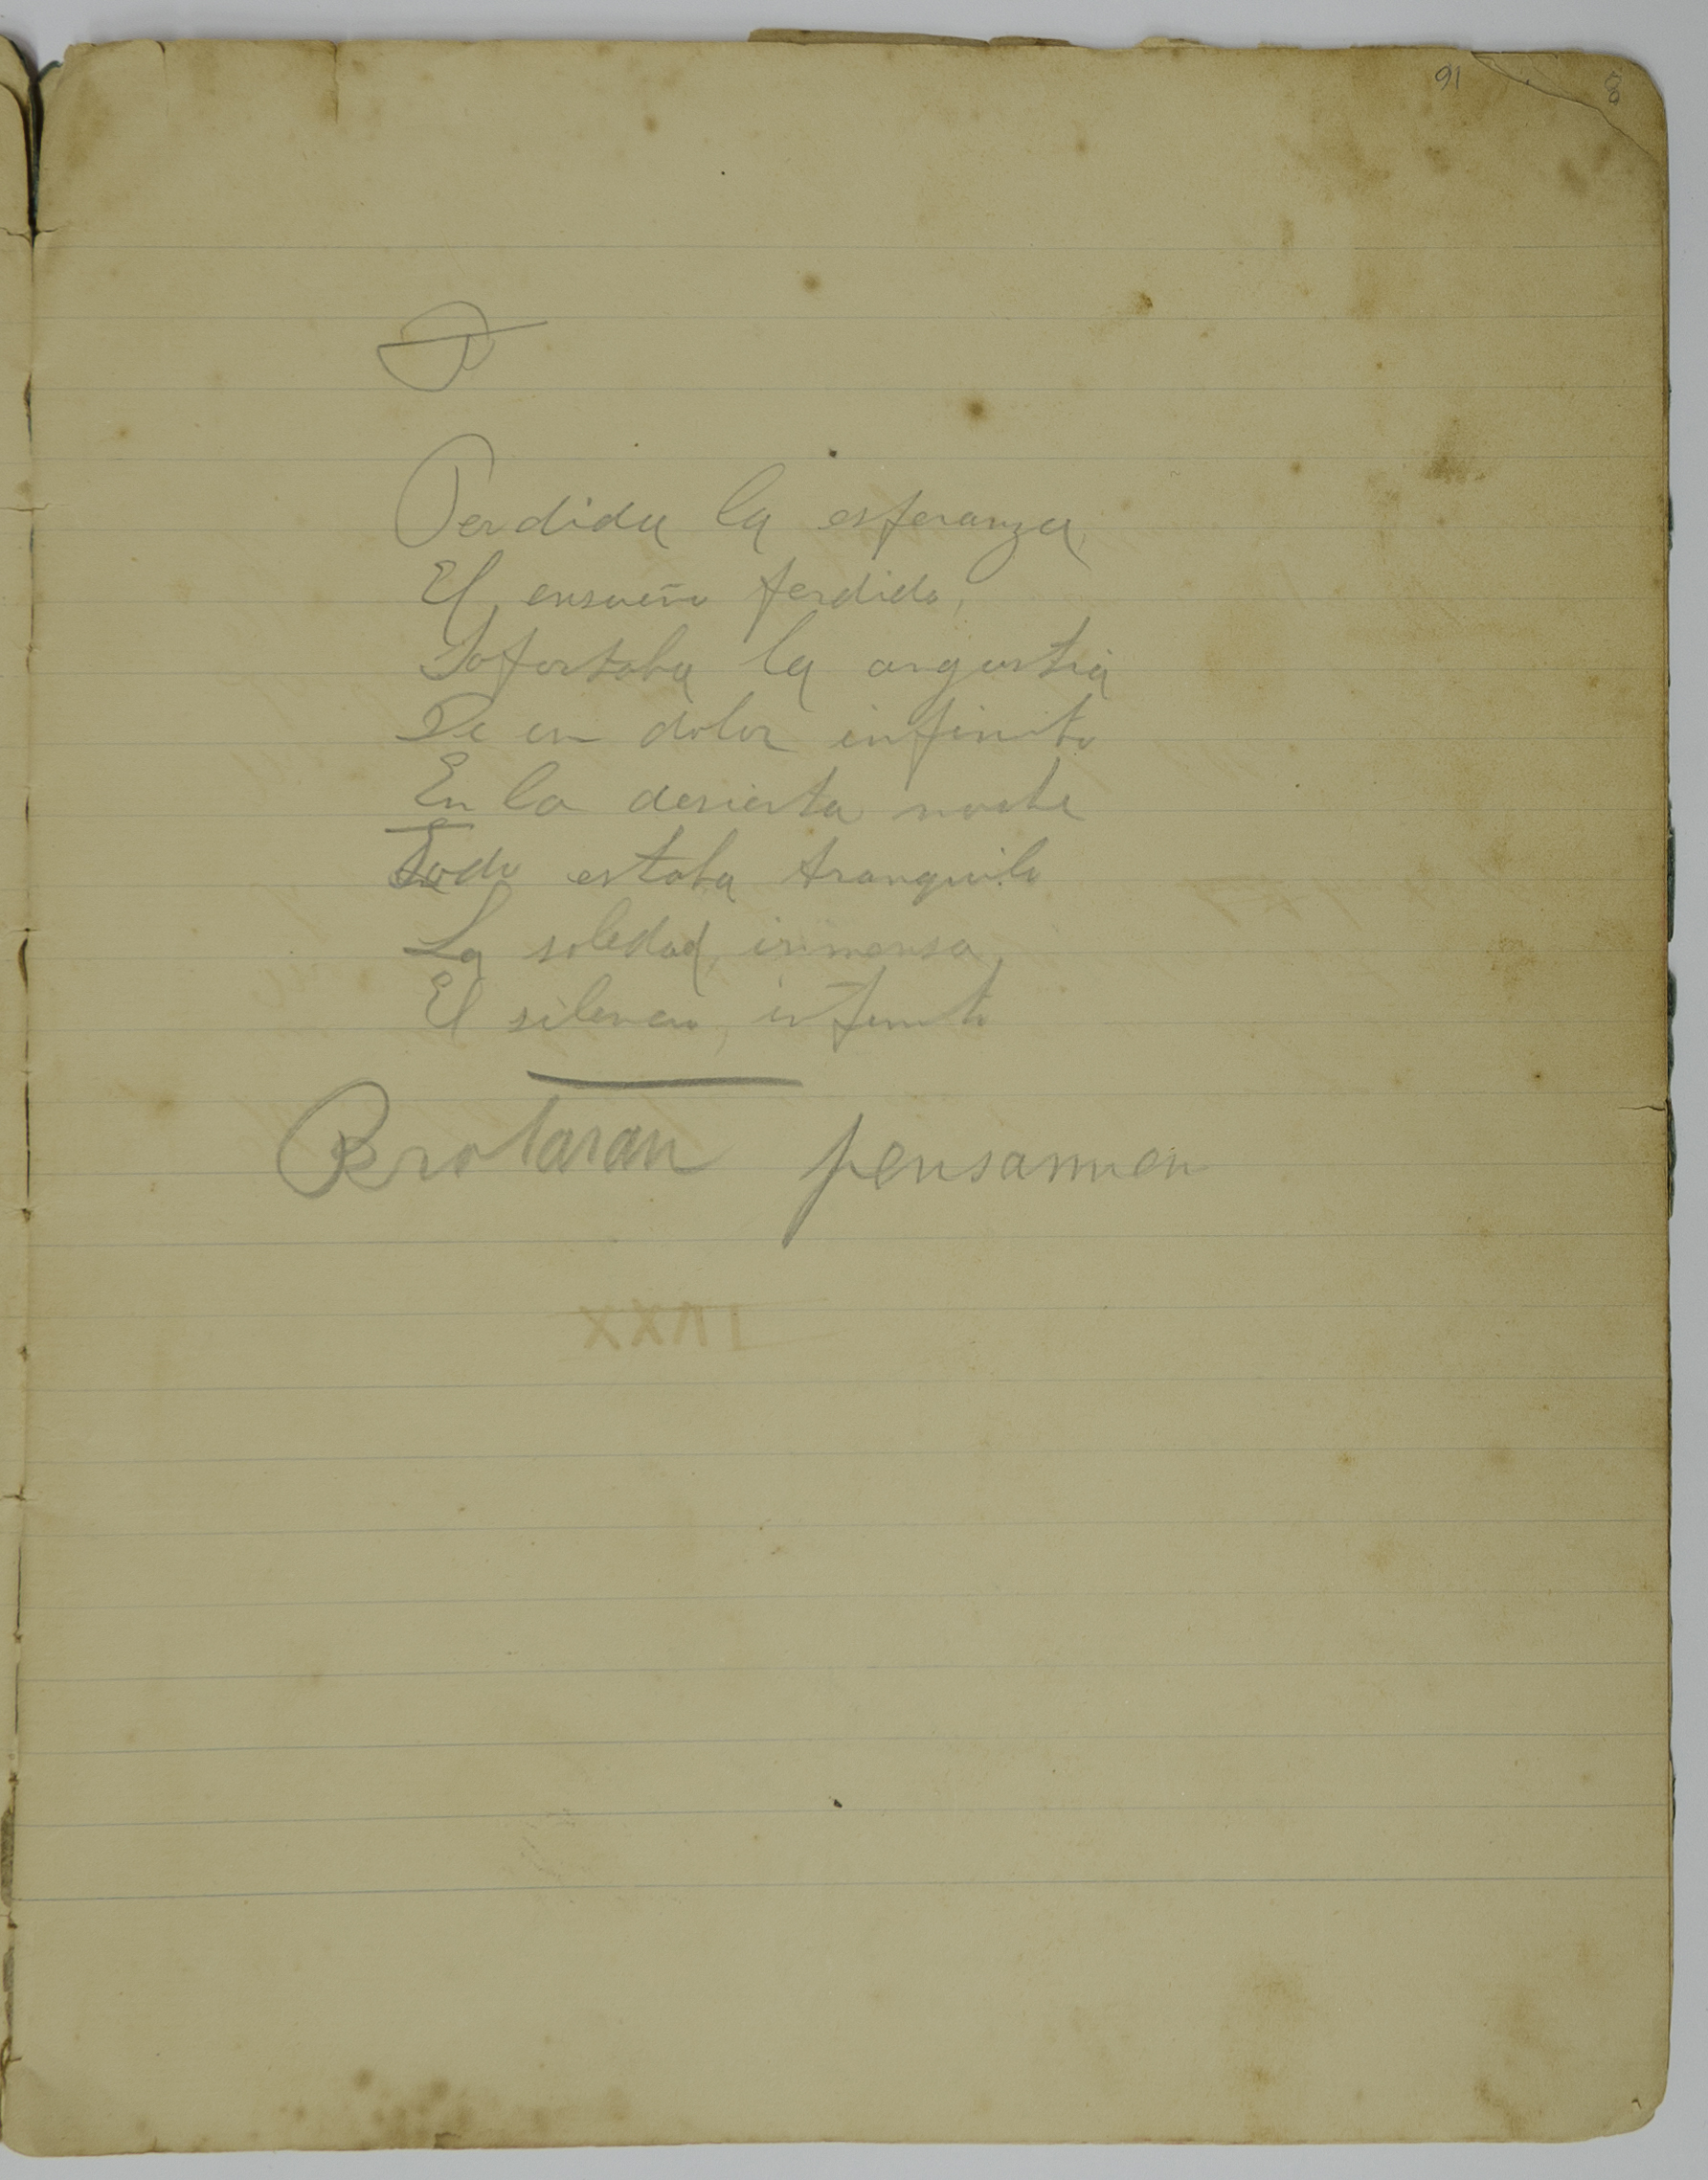 91
8
I
Perdida la esperanza,
El ensueño perdido,
Soportaba la angustia
De un dolor infinito
En la desierta noche
Todo estaba tranquilo
La soledad, inmensa,
El silencio, infinito
Brotaran pensamien